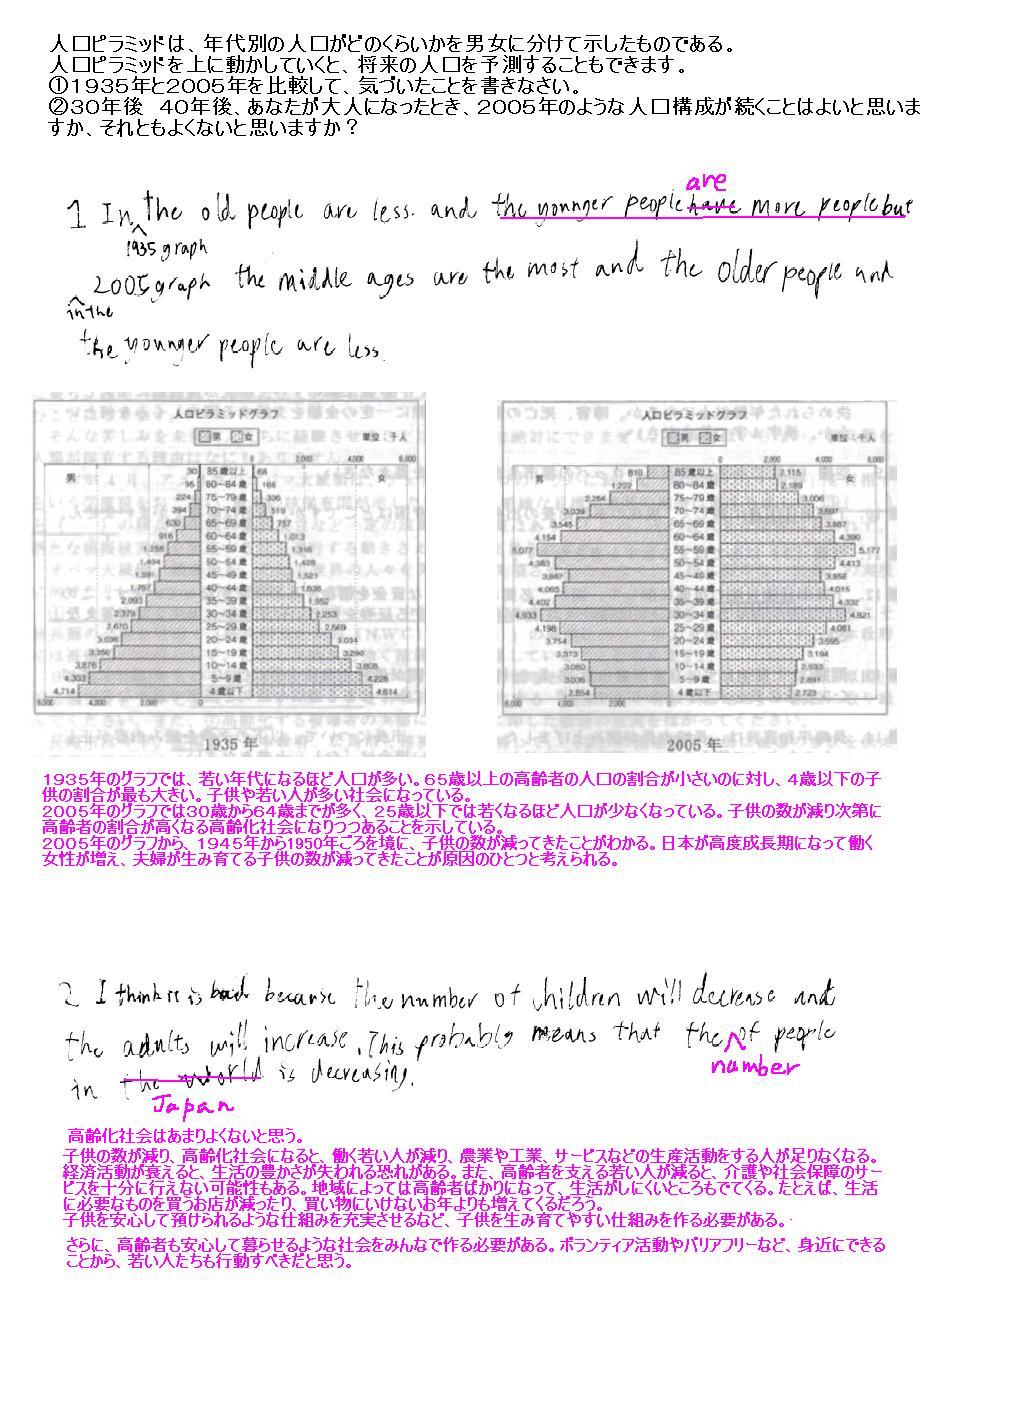 人口ピラミッドは、年代別の人口がどのくらいかを男女に分けて示したものである。
人口ピラミッドを上に動かしていくと、将来の人口を予測することもできます。
①1935年と2005年を比較して、気づいたことを書きなさい。
②30年後 40年後、あなたが大人になったとき、2005年のような人口構成が続くことはよいと思いま
すか、それともよくないと思いますか？
are
1 In the old people are less. and the younger people have more people but
1935 graph
2005 graph the middle ages are the most and the older people and
in the
the younger people are less.
人口ピラミッドグラフ
男 女 単位：千人
0 2,000 4,000 6,000
男 女
30 85歳以上 68
95 80～84歳 168
224 75～79歳 306
394 70～74歳 519
630 65～69歳 757
916 60～64歳 1,013
55～59歳 1,316
50～54歳 1,428
45～49歳 1,521
1,767 40～44歳 1,638
2,093 35～39歳 1,952
2,379 30～34歳 2,253
2,670 25～29歳 2,569
3,036 20～24歳 3,034
3,350 15～19歳 3,290
3,876 10～14歳 3,808
4,303 5～9歳 4,228
4,714 4歳以下 4,614
6,000 4,000 2,000 0
1935年
人口ピラミッドグラフ
男 女 単位：千人
0 2,000 4,000 6,000
男 女
810 85歳以上 2,115
1,222 80～84歳 2,189
2,256 75～79歳 3,006
3,039 70～74歳 3,597
3,545 65～69歳 3,887
4,154 60～64歳 4,390
5,077 55～59歳 5,177
4,383 50～54歳 4,413
3,867 45～49歳 3,858
4,065 40～44歳 4,015
4,402 35～39歳 4,332
4,933 30～34歳 4,821
4,198 25～29歳 4,081
3,754 20～24歳 3,595
3,373 15～19歳 3,194
3,080 10～14歳 2,933
3,036 5～9歳 2,891
2,854 4歳以下 2,723
6,000 4,000 2,000 0
2005年
1935年のグラフでは、若い年代になるほど人口が多い。65歳以上の高齢者の人口の割合が小さいのに対し、4歳以下の子
供の割合が最も大きい。子供や若い人が多い社会になっている。
2005年のグラフでは30歳から64歳までが多く、25歳以下では若くなるほど人口が少なくなっている。子供の数が減り次第に
高齢者の割合が高くなる高齢化社会になりつつあることを示している。
2005年のグラフから、1945年から1950年ごろを境に、子供の数が減ってきたことがわかる。日本が高度成長期になって働く
女性が増え、夫婦が生み育てる子供の数が減ってきたことが原因のひとつと考えられる。
2 I think it is bad because the number of children will decrease and
the adults will increase. This probably means that the of people
number
in the world is decreasing.
Japan
高齢化社会はあまりよくないと思う。
子供の数が減り、高齢化社会になると、働く若い人が減り、農業や工業、サービスなどの生産活動をする人が足りなくなる。
経済活動が衰えると、生活の豊かさが失われる恐れがある。また、高齢者を支える若い人が減ると、介護や社会保障のサー
ビスを十分に行えない可能性もある。地域によっては高齢者ばかりになって、生活がしにくいところもでてくる。たとえば、生活
に必要なものを買うお店が減ったり、買い物にいけないお年よりも増えてくるだろう。
子供を安心して預けられるような仕組みを充実させるなど、子供を生み育てやすい仕組みを作る必要がある。
さらに、高齢者も安心して暮らせるような社会をみんなで作る必要がある。ボランティア活動やバリアフリーなど、身近にできる
ことから、若い人たちも行動すべきだと思う。